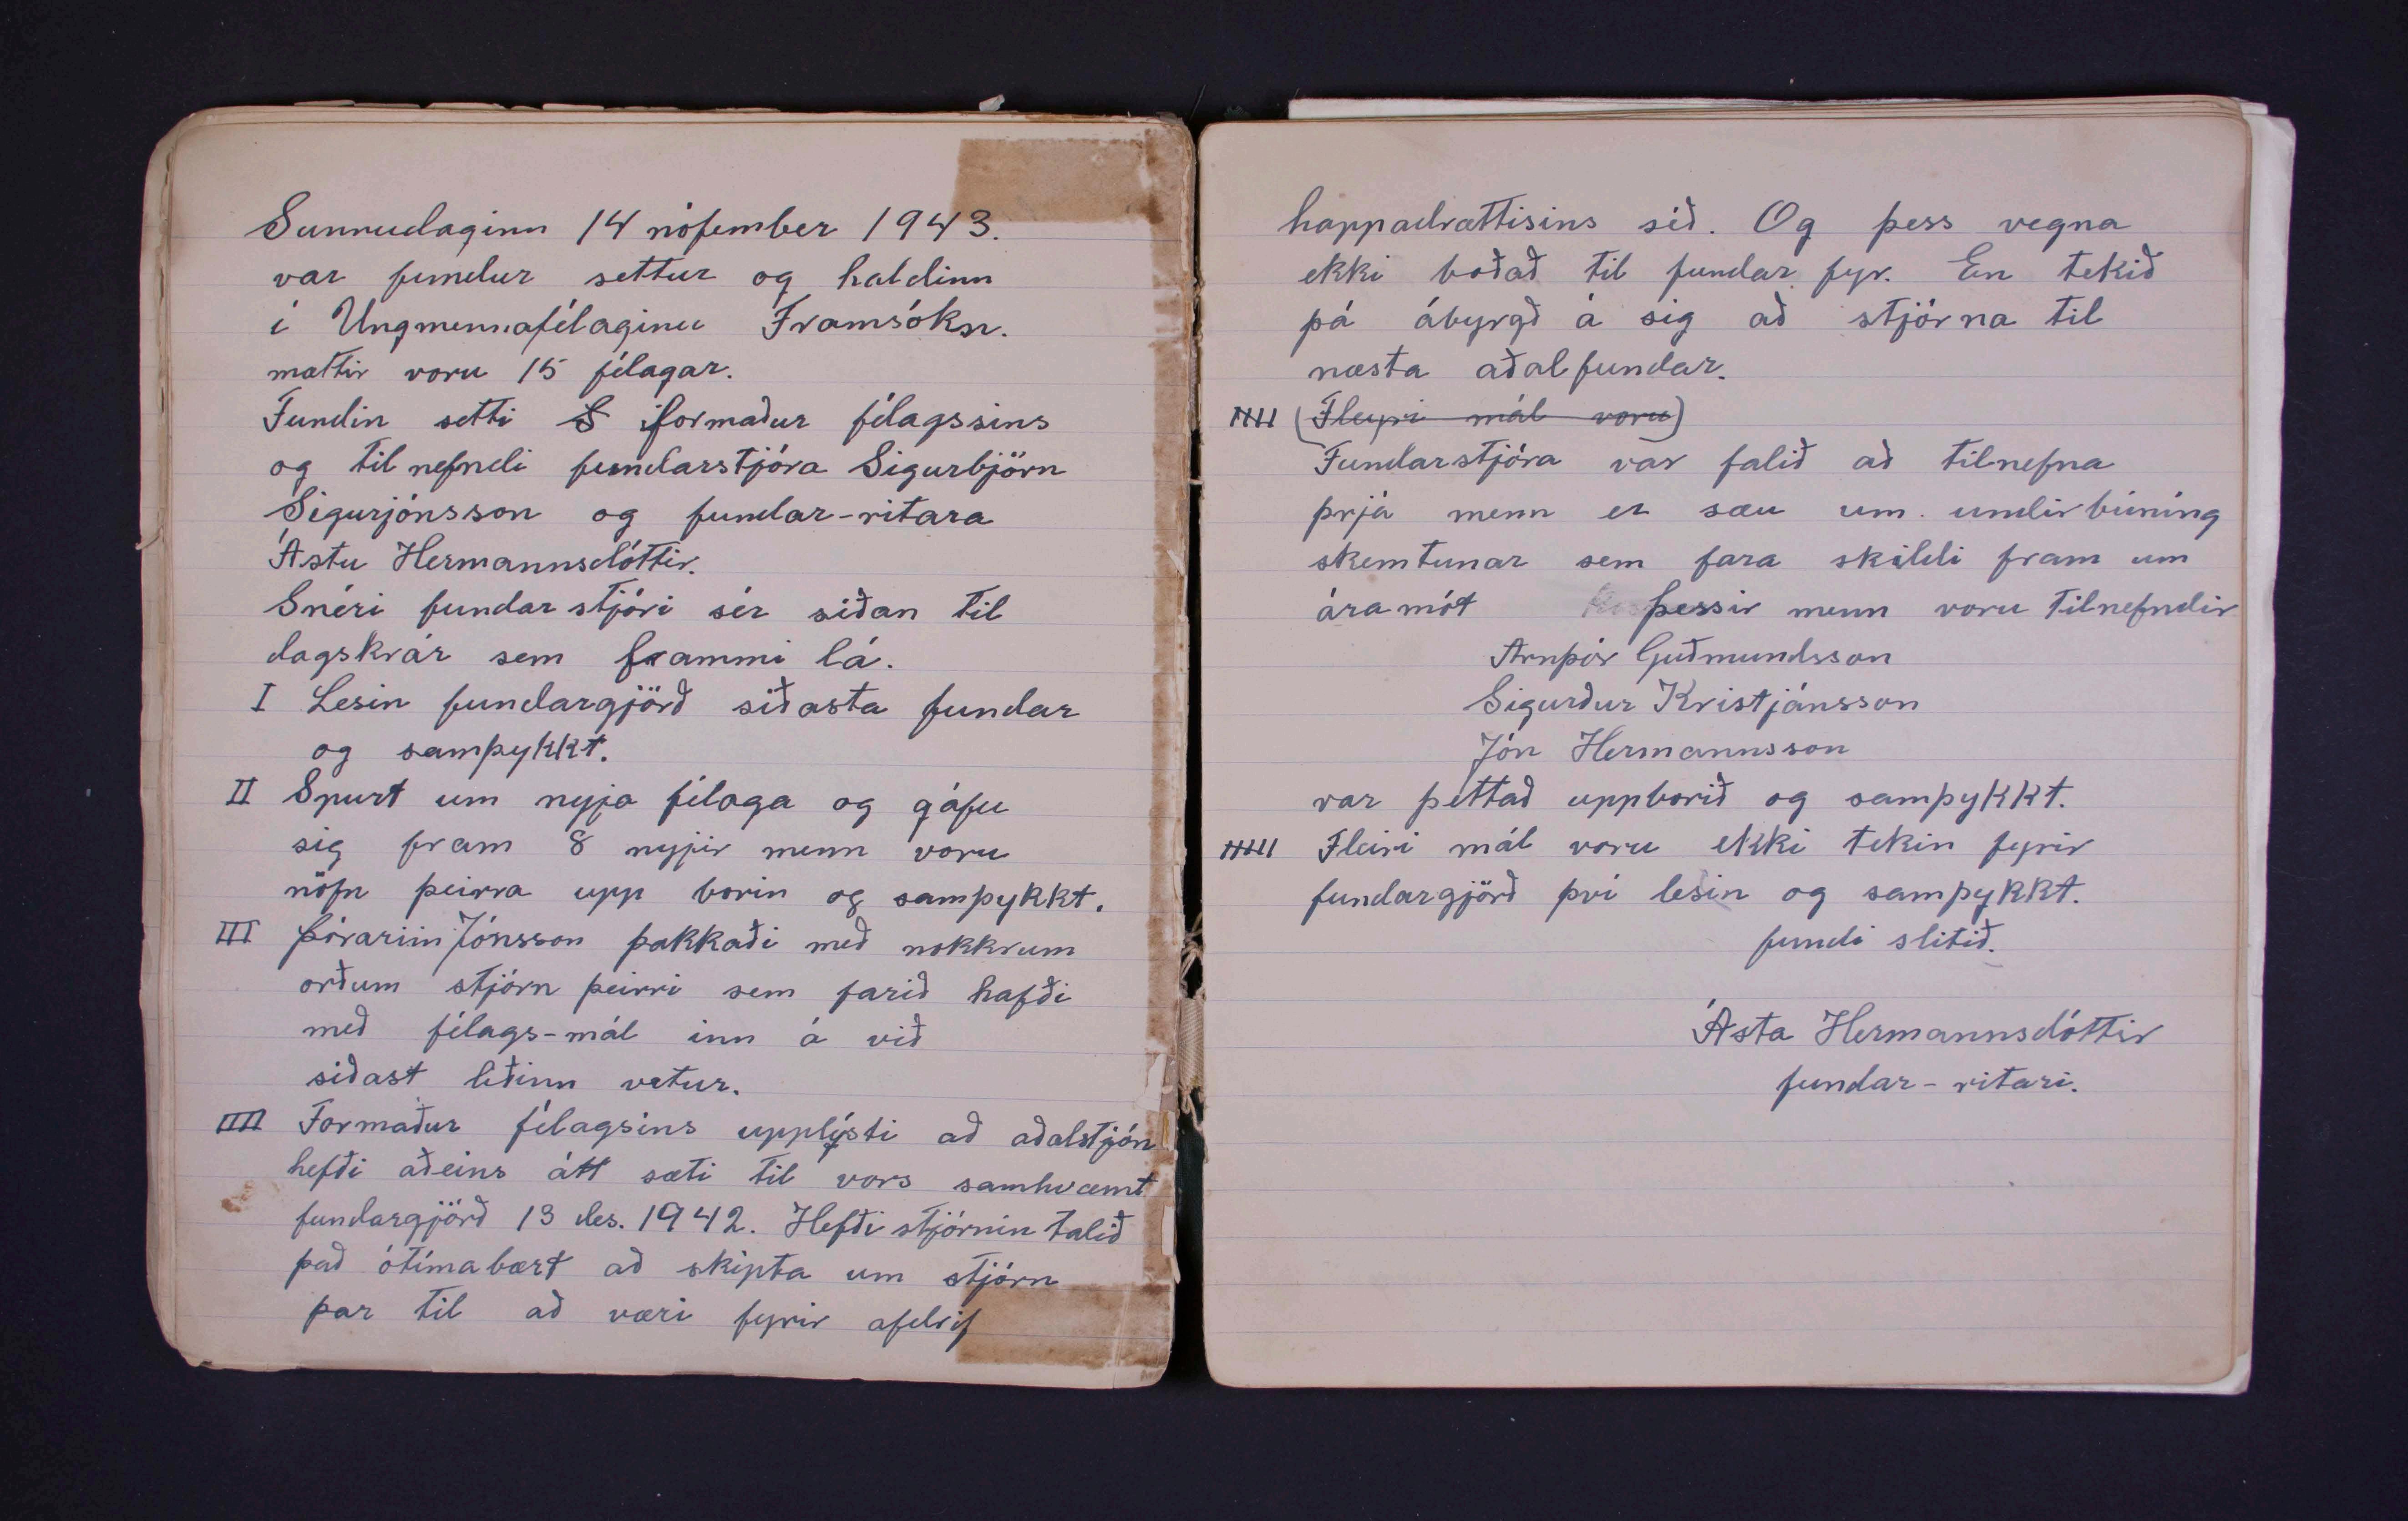 Sunnudaginn 14 nófember 1943.
var fundur settur og haldinn
í Ungmennafélaginu Framsókn.
mættir voru 15 félagar.
Fundin setti formaður félagssins
og tilnefndi fundarstjóra Sigurbjörn
Sigurjónsson og fundar-ritara
Ástu Hermannsdóttir.
Snéri fundarstjóri sér síðan til
dagskrár sem frammi lá.
I Lesin fundargjörð síðasta fundar
og samþykkt.
II Spurt um nyja félaga og gáfu
sig fram 8 nyjir menn voru
nöfn þeirra upp borin og samþykkt.
III Þórarinn Jónsson þakkaði með nokkrum
orðum stjórn þeirri sem farið hafði
með félags-mál inn á við
síðast liðinn vetur.
IIII Formaður félagsins upplýsti að aðalstjórn
hefði aðeins átt sæti til vors samkvæmt
fundargjörð 13 des. 1942. Hefði stjórnin talið
það ótímabært að skipta um stjórn
þar til að væri fyrir afdrif
happadrættisins séð. Og þess vegna
ekki boðað til fundar fyr. En tekið
þá ábyrgð á sig að stjórna til
næsta aðalfundar.
IIIII (Fleyri mál voru)
Fundarstjóra var falið að tilnefna
þrjá menn er sæu um undirbúning
skemtunar sem fara skildi fram um
áramót þessir menn voru tilnefndir
Arnþór Guðmundsson
Sigurður Kristjánsson
Jón Hermannsson
var þettað uppborið og samþykkt.
IIIIII Fleiri mál voru ekki tekin fyrir
fundargjörð því lesin og samþykkt.
fundi slitið.
Ásta Hermannsdóttir
fundar-ritari.